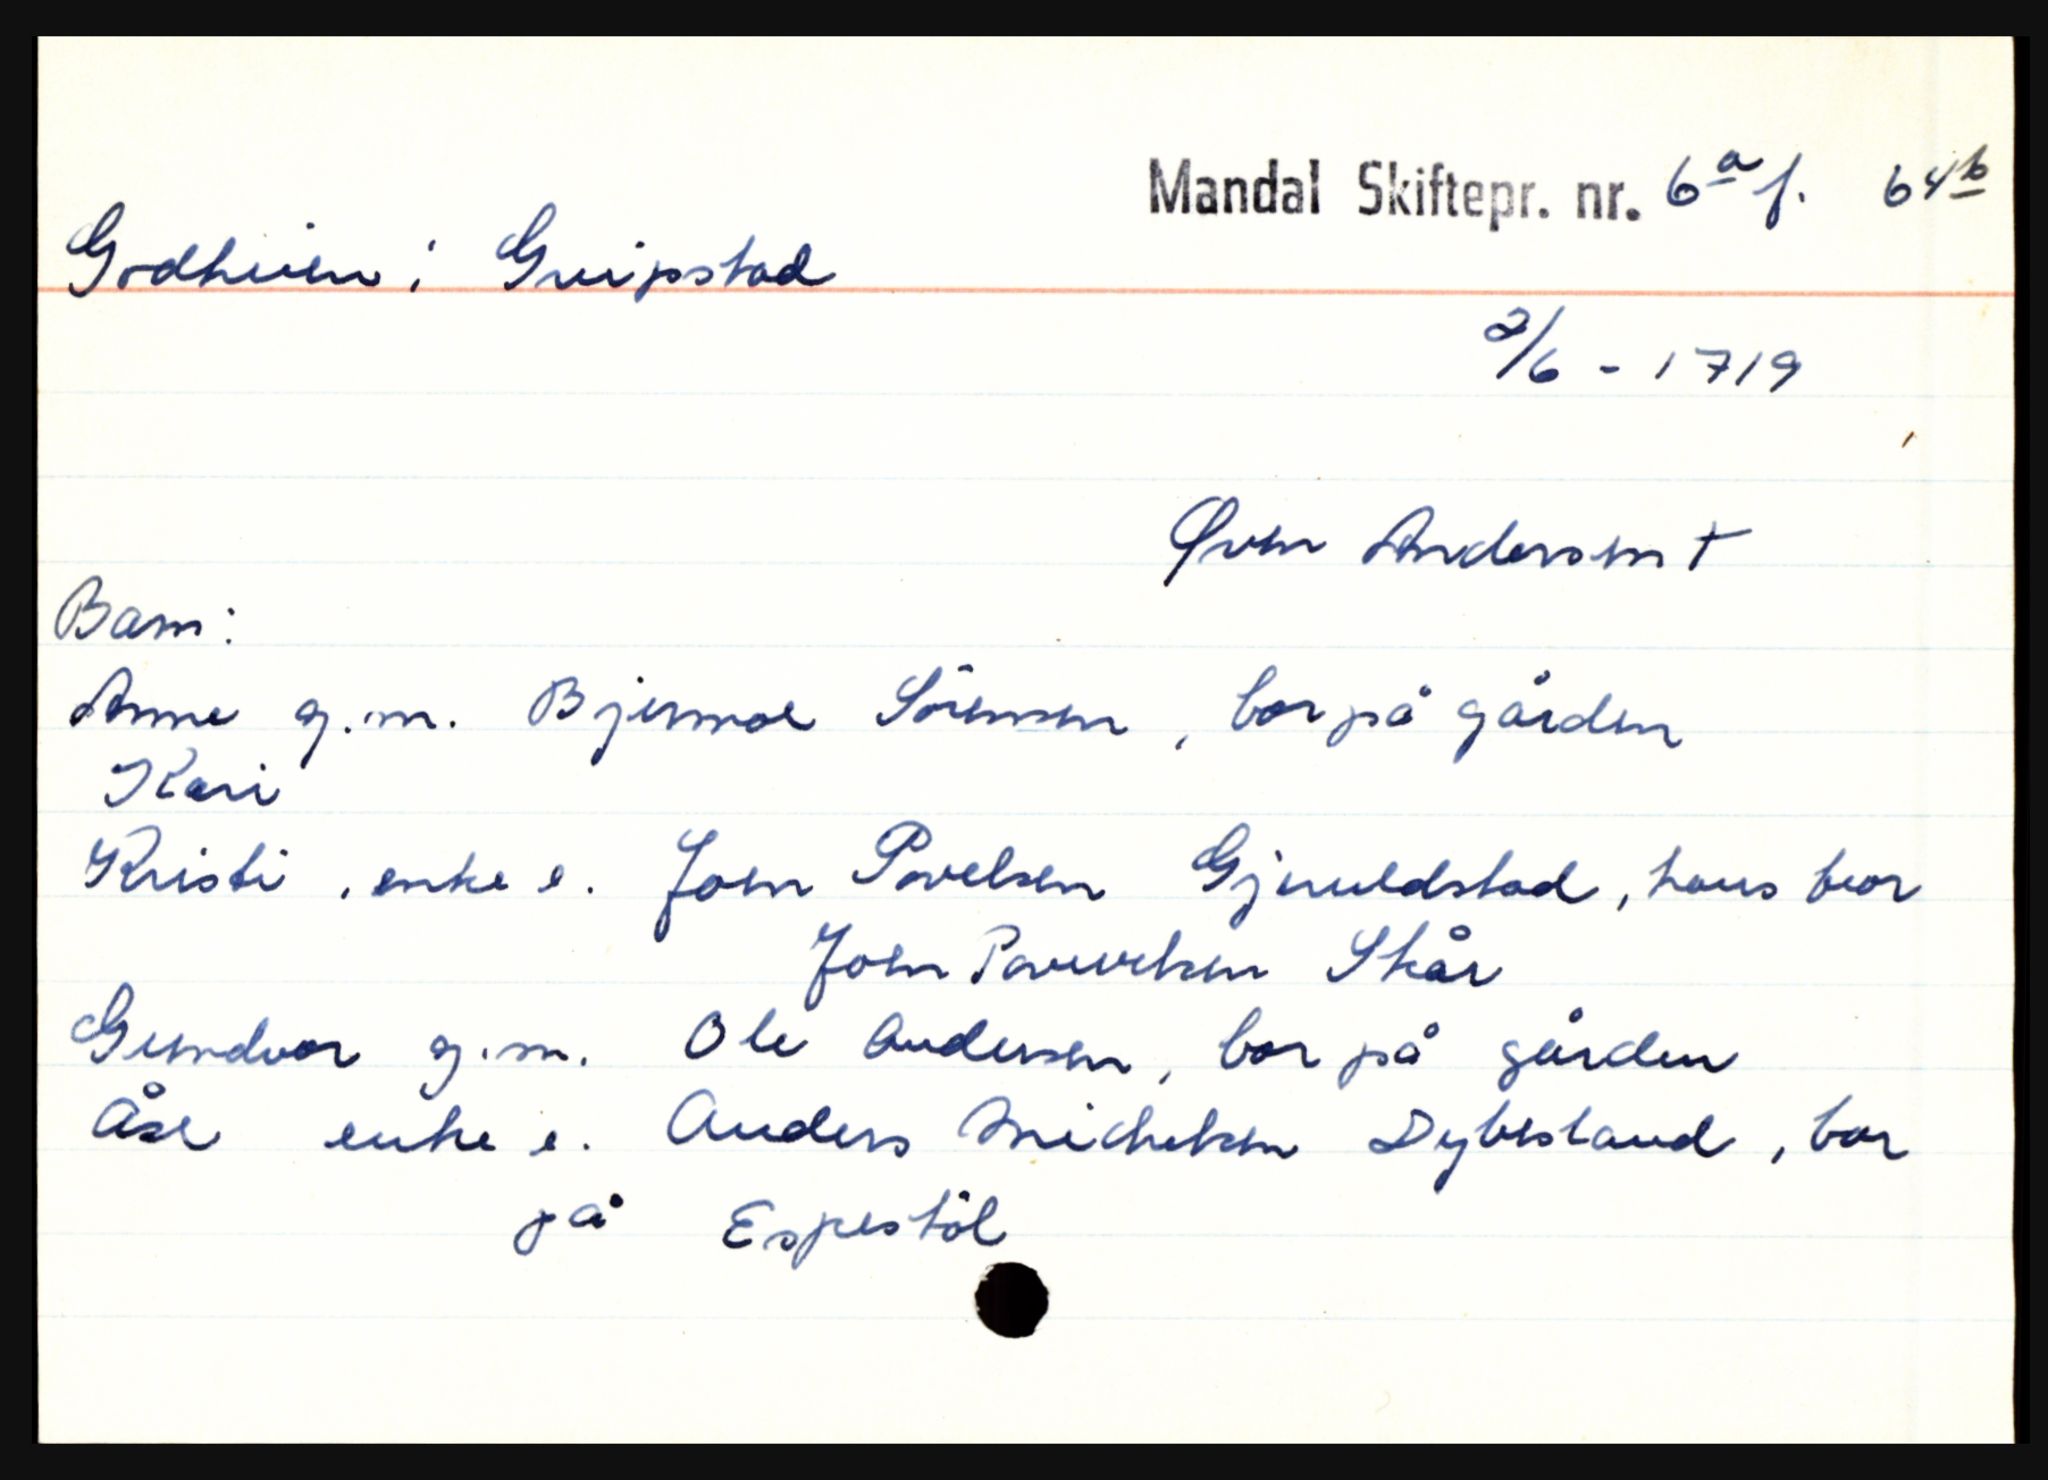 Mandal Skiftepr. nr. 6a f. 64b
Godheien i Greipstad
2/6 - 1719
Øven Andersen †
Barn:
Anne g.m. Bjernoe Sörensen, bor på gården
Kari
Kristi, enke e. Joen Povelsen Gjeruldstad, hans bror
Joen Povelsen Skår
Gundvor g.m. Ole Andersen, bor på gården
Åse enke e. Anders Michelsen Dybesland, bor
på Espestöl